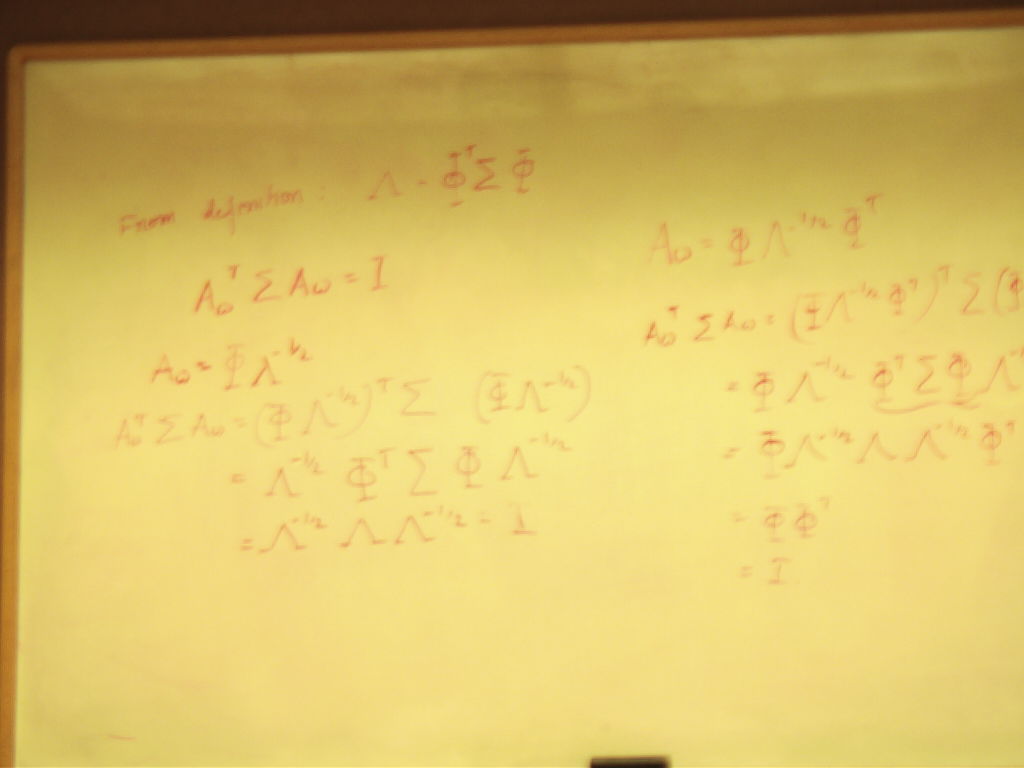 From definition : Λ = Φᵀ Σ Φ
A_ωᵀ Σ A_ω = I
A_ω = Φ Λ^(-1/2)
A_ωᵀ Σ A_ω = (Φ Λ^(-1/2))ᵀ Σ (Φ Λ^(-1/2))
= Λ^(-1/2) Φᵀ Σ Φ Λ^(-1/2)
= Λ^(-1/2) Λ Λ^(-1/2) = I
A_ω = Φ Λ^(-1/2) Φᵀ
A_ωᵀ Σ A_ω = (Φ Λ^(-1/2) Φᵀ)ᵀ Σ (Φ
= Φ Λ^(-1/2) Φᵀ Σ Φ Λ^(-1/
= Φ Λ^(-1/2) Λ Λ^(-1/2) Φᵀ
= Φ Φᵀ
= I